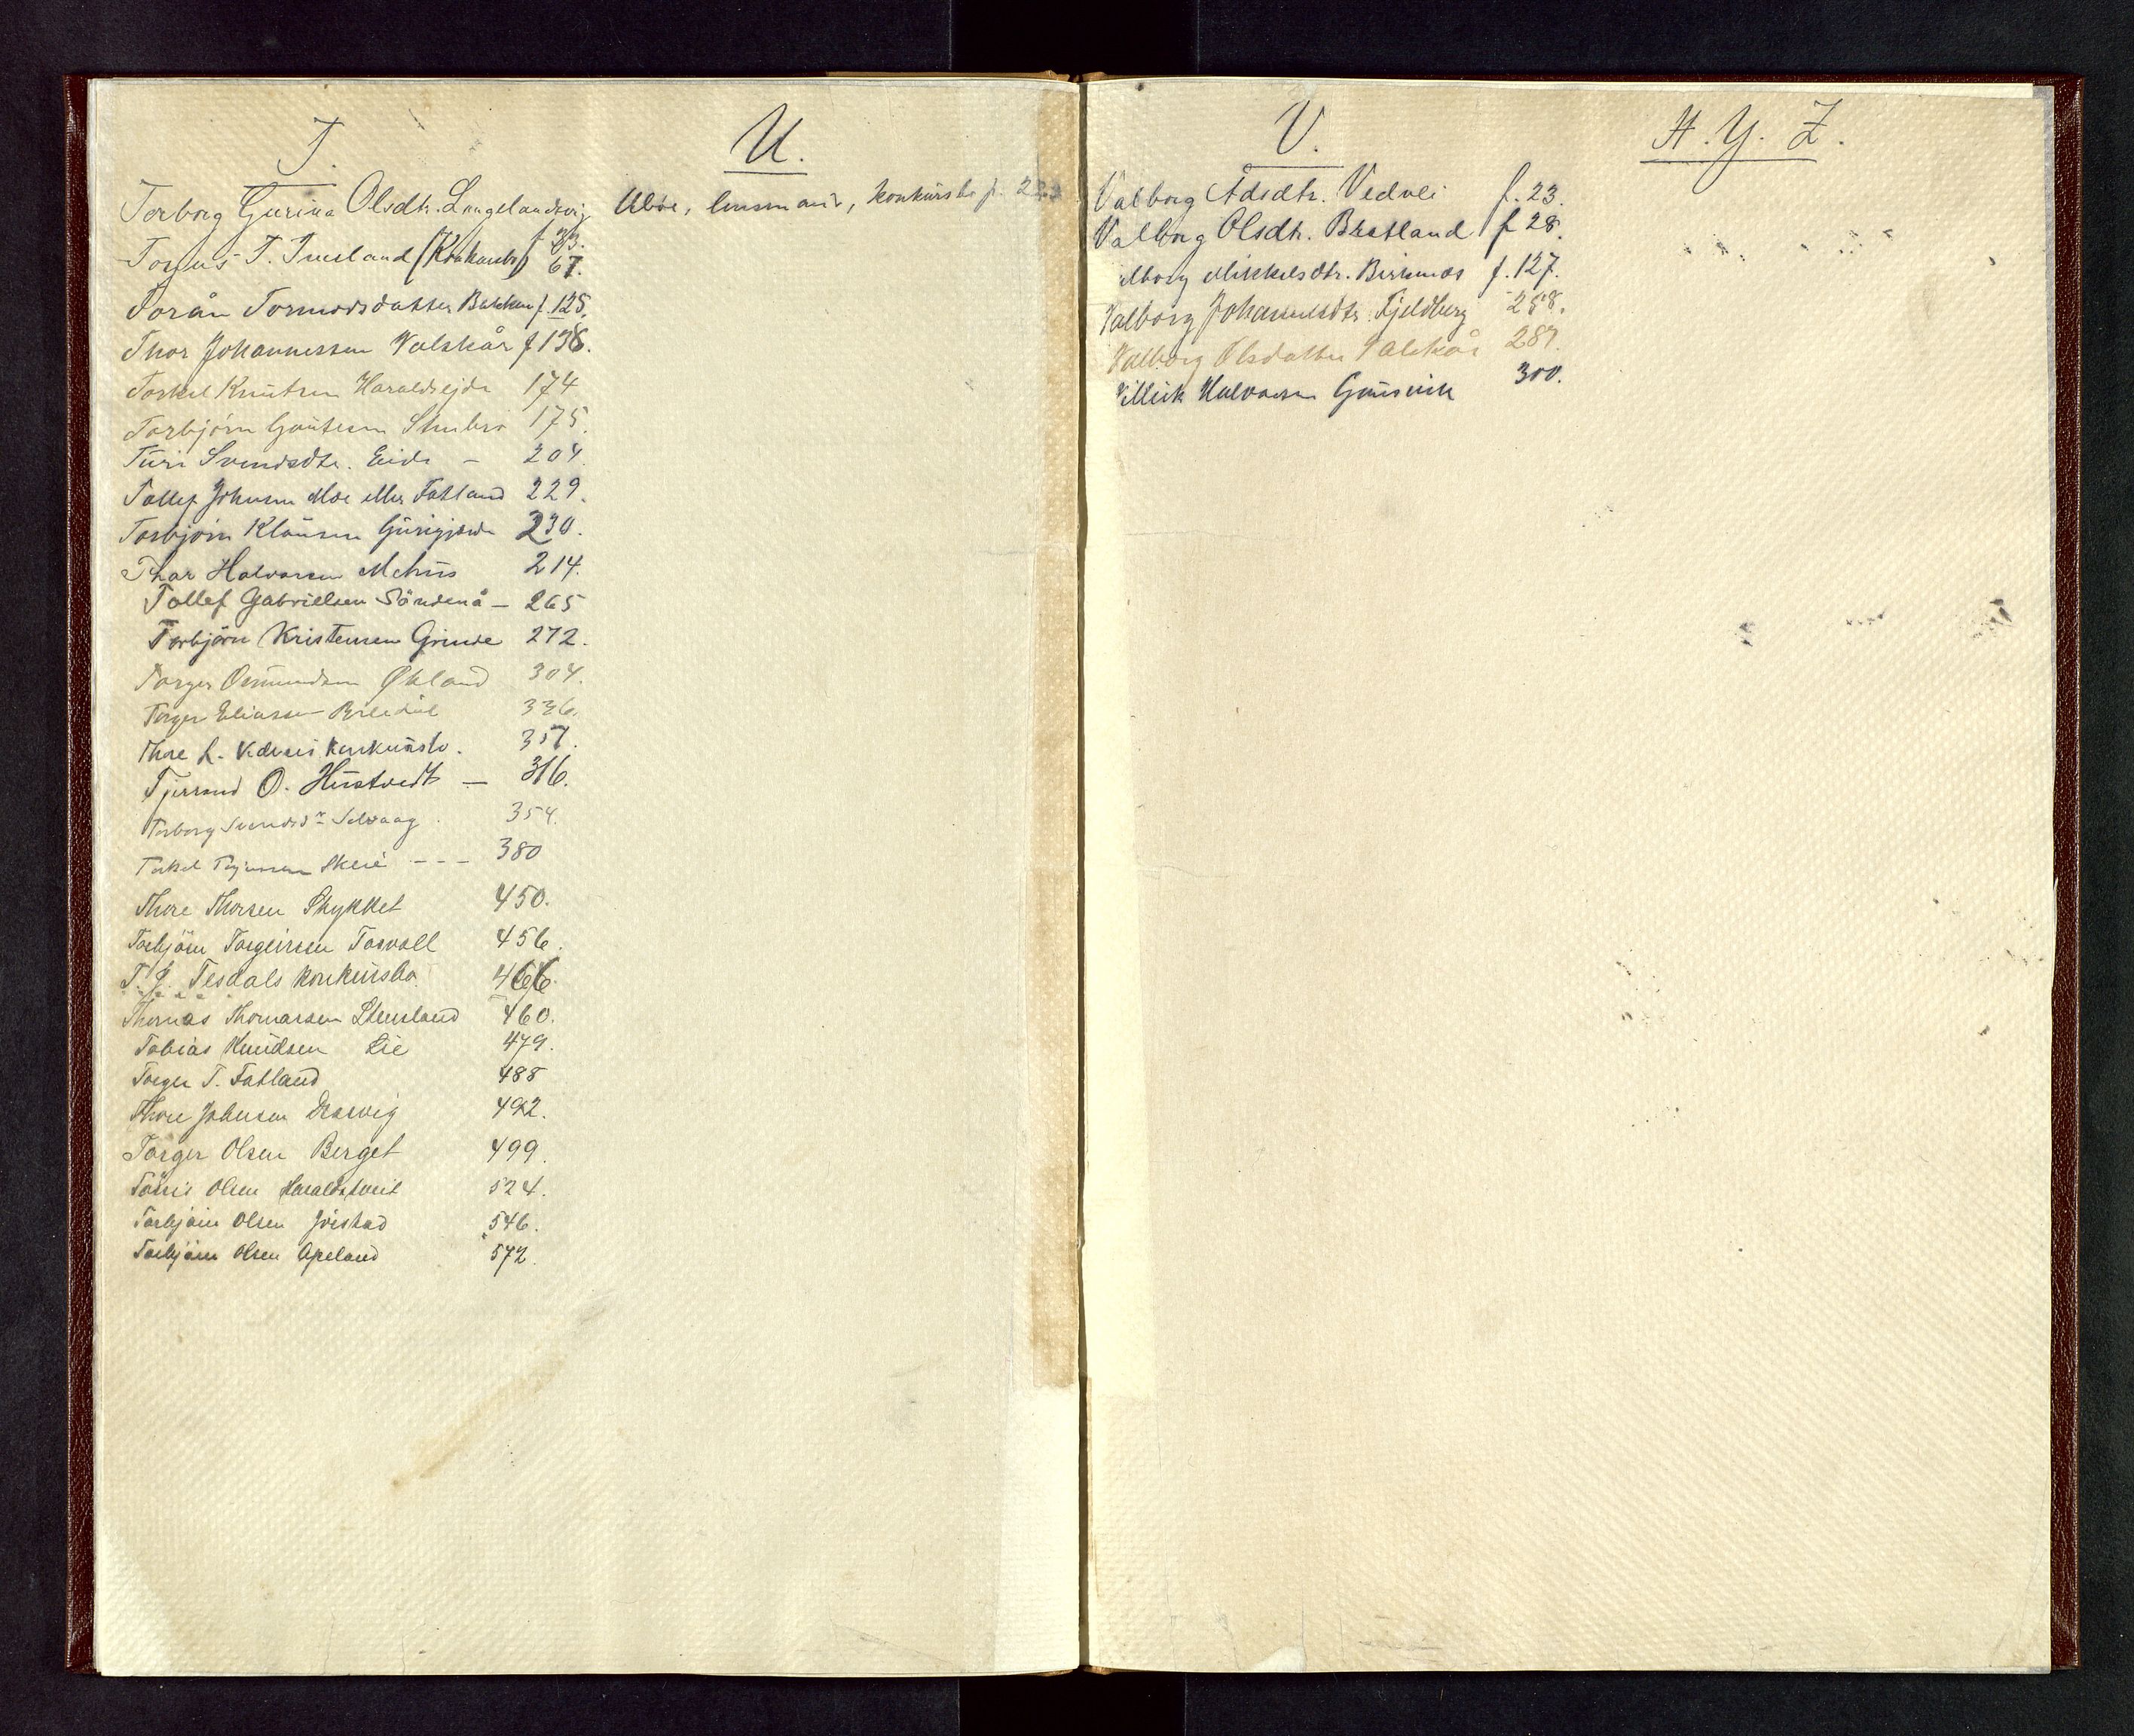 T.
Torborg Gurina Olsdtr. Langelandsvig
33.
Torjus T. Imsland (Konkursbo) 67.
Torån Tormodsdatter Bakken f. 125.
Thor Johannessen Valskår f 138.
Torkel Knutsen Haraldseide 174
Torbjørn Gautesen Stubru 175.
Turi Svendsdtr. Eide – 204.
Tollef Johnsen Moe eller Fatland 229.
Torbjørn Klausen 230.
Thor Halvorsen Mehus 214.
Tollef Gabrielsen Söndenå – 265
Torbjörn Kristensen Grinde 272.
Torger Osmundsen Økland 304.
Torger Eliassen 336.
Thore L. konkursbo. 357.
Tjerrand O. Hustvedt – 316.
Torborg Svendsdr Selvaag. 354.
Torkel Skeie - - - 380
Thore Thorsen Stykket 450.
Torbjörn Torgeirsen Torvall 456.
T. J. Tesdals konkursbo. 466.
Thomas Thomassen Stensland 460.
Tobias Knudsen Lie 479.
Torger T. Fatland 488
Thore Johnsen 492.
Torger Olsen Berget 499.
Olsen Haraldstveit 524.
Torbjörn Olsen 546.
Torbjörn Olsen Apeland 572.
U.
Ubøe, lensmand, konkursbo f.
V.
Valborg Adsdtr. Vedvei f. 23.
Valborg Olsdtr. Bratland f 28.
Valborg Mikkelsdtr. Birkenes f. 127.
Valborg Johannesdtr. Fjeldberg 258.
Valborg Olsdatter Valskår 287.
Villiik Halvorsen Gunsvik 300.
X. Y. Z.